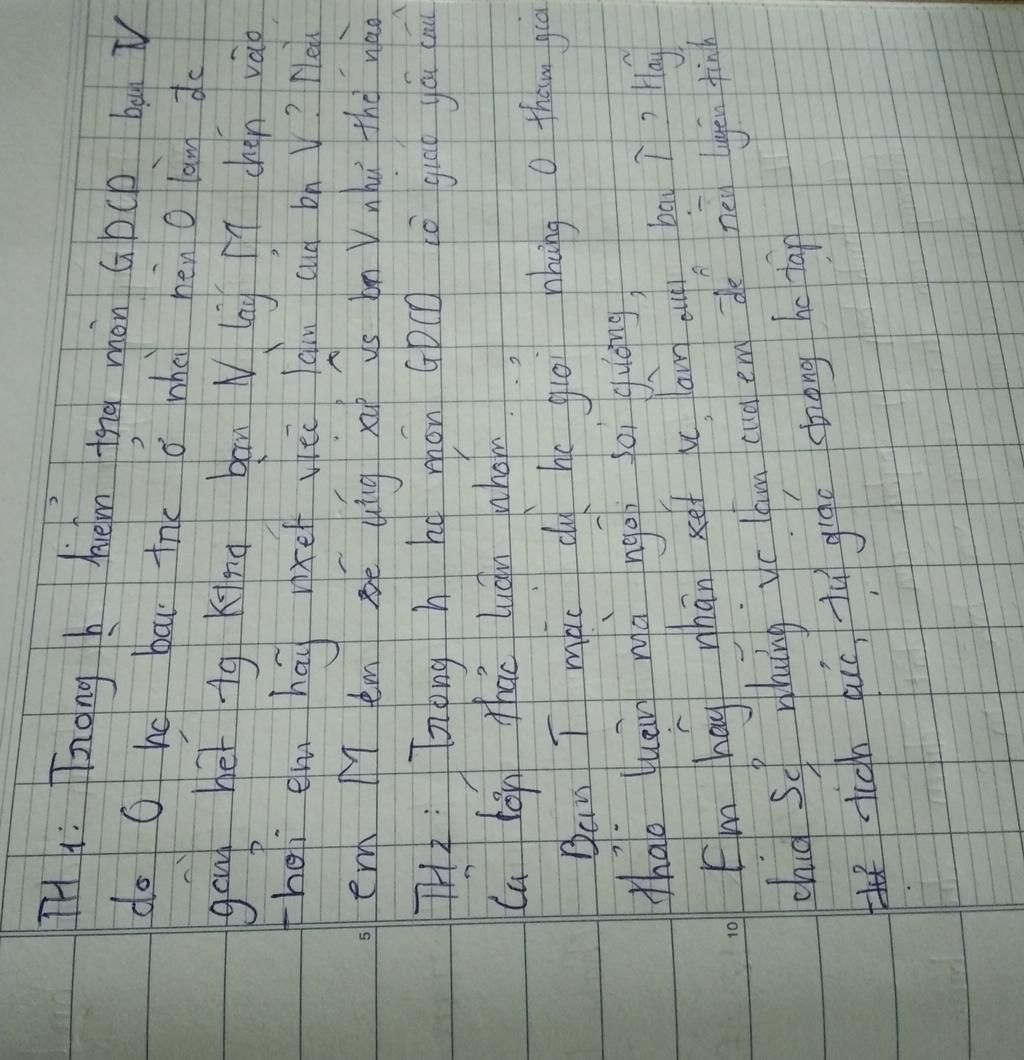 TH 1: Trong h kiểm tra môn GDCD bạn V
do O hc bài trc ở nhà nên O làm đc
gần hết tg Ktra bạn V lấy M chép vào
hỏi em hãy nxét việc làm của bn V? Nếu
em M em sẽ ứng xử vs bn V như thế nào
TH2: Trong h hc môn GDCD cô giáo yêu cầu
Cả lớp thảo luận nhóm.
Bạn T mặc dù hc giỏi nhưng O tham gia
thảo luận mà ngồi soi gương,
Em hãy nhận xét vc làm của bạn T? Hãy
chia sẻ những vc làm của em để rèn luyện tính
tích cực, tự giác trong hc tập
5
10